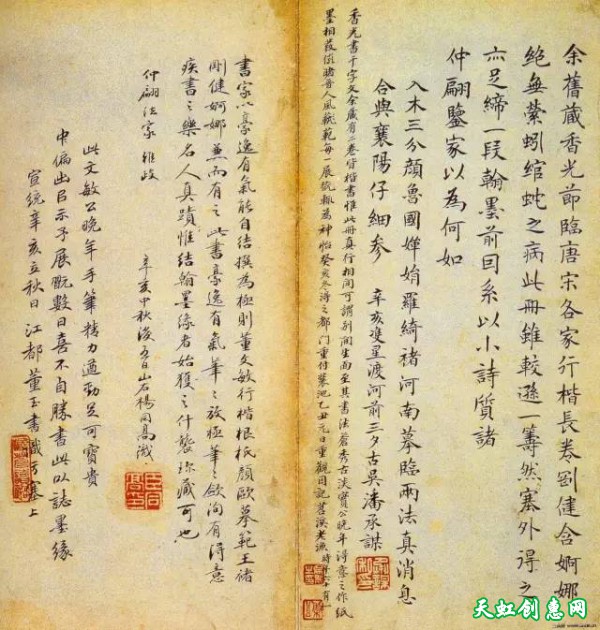 余舊藏香光節臨唐宋各家行楷長卷劉健含婀娜
絕無縈蚓綰蛇之病此冊雖較遜一籌然塞外得之
亦足締一段翰墨前因系以小詩質諸
仲翩鑒家以為何如
入木三分顏魯國嬋娟羅綺褚河南摹臨兩法真消息
合與襄陽仔細參
辛亥雙星渡河前三夕古吳潘承謀
香光書千字文余藏有二卷皆楷書惟此冊真行相間可謂別開生面至其書法蒼秀古淡實公晚年得意之作紙
墨相發恍睹晉人風範每一展玩輒為神怡癸亥冬得之都門重付裝池乙丑元日重觀因記苕溪老漁時年六十有一
書家以豪逸有氣能自結撰為極則董文敏行楷根柢顏歐摹範王褚
剛健婀娜兼而有之此書豪逸有氣筆筆放極筆筆斂洵有得意
疾書之樂名人真蹟惟結翰墨緣者始獲之什襲珍藏可也
仲翩法家雅政
辛亥中秋後五日山右楊同高識
此文敏公晚年手筆精力遒勁足可寶貴
中偏出以示予展玩數日喜不自勝書此以誌墨緣
宣統辛亥立秋日江都董玉書識于塞上
天虹创惠网